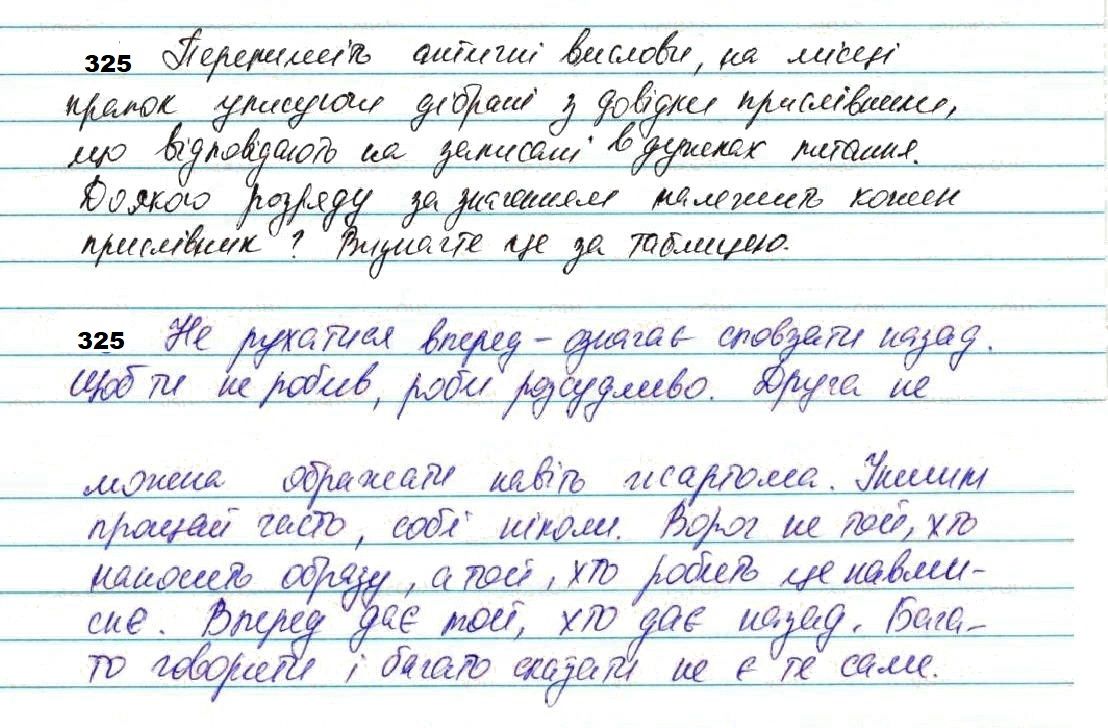 325 Перепишіть античні вислови, на місці
крапок уписуючи дібрані з довідки прислівники,
що відповідають на записані в дужках питання.
До якого розряду за значенням належить кожен
прислівник? Визначте це за таблицею.
325 Не рухатися вперед – означає сповзати назад.
Щоб ти не робив, роби розсудливо. Друга не
можна ображати навіть жартома. Іншим
прощай часто, собі ніколи. Ворог не той, хто
наносить образу, а той, хто робить це навми-
снє. Вперед дає той, хто дає назад. Бага-
то говорити і багато сказати не є те саме.